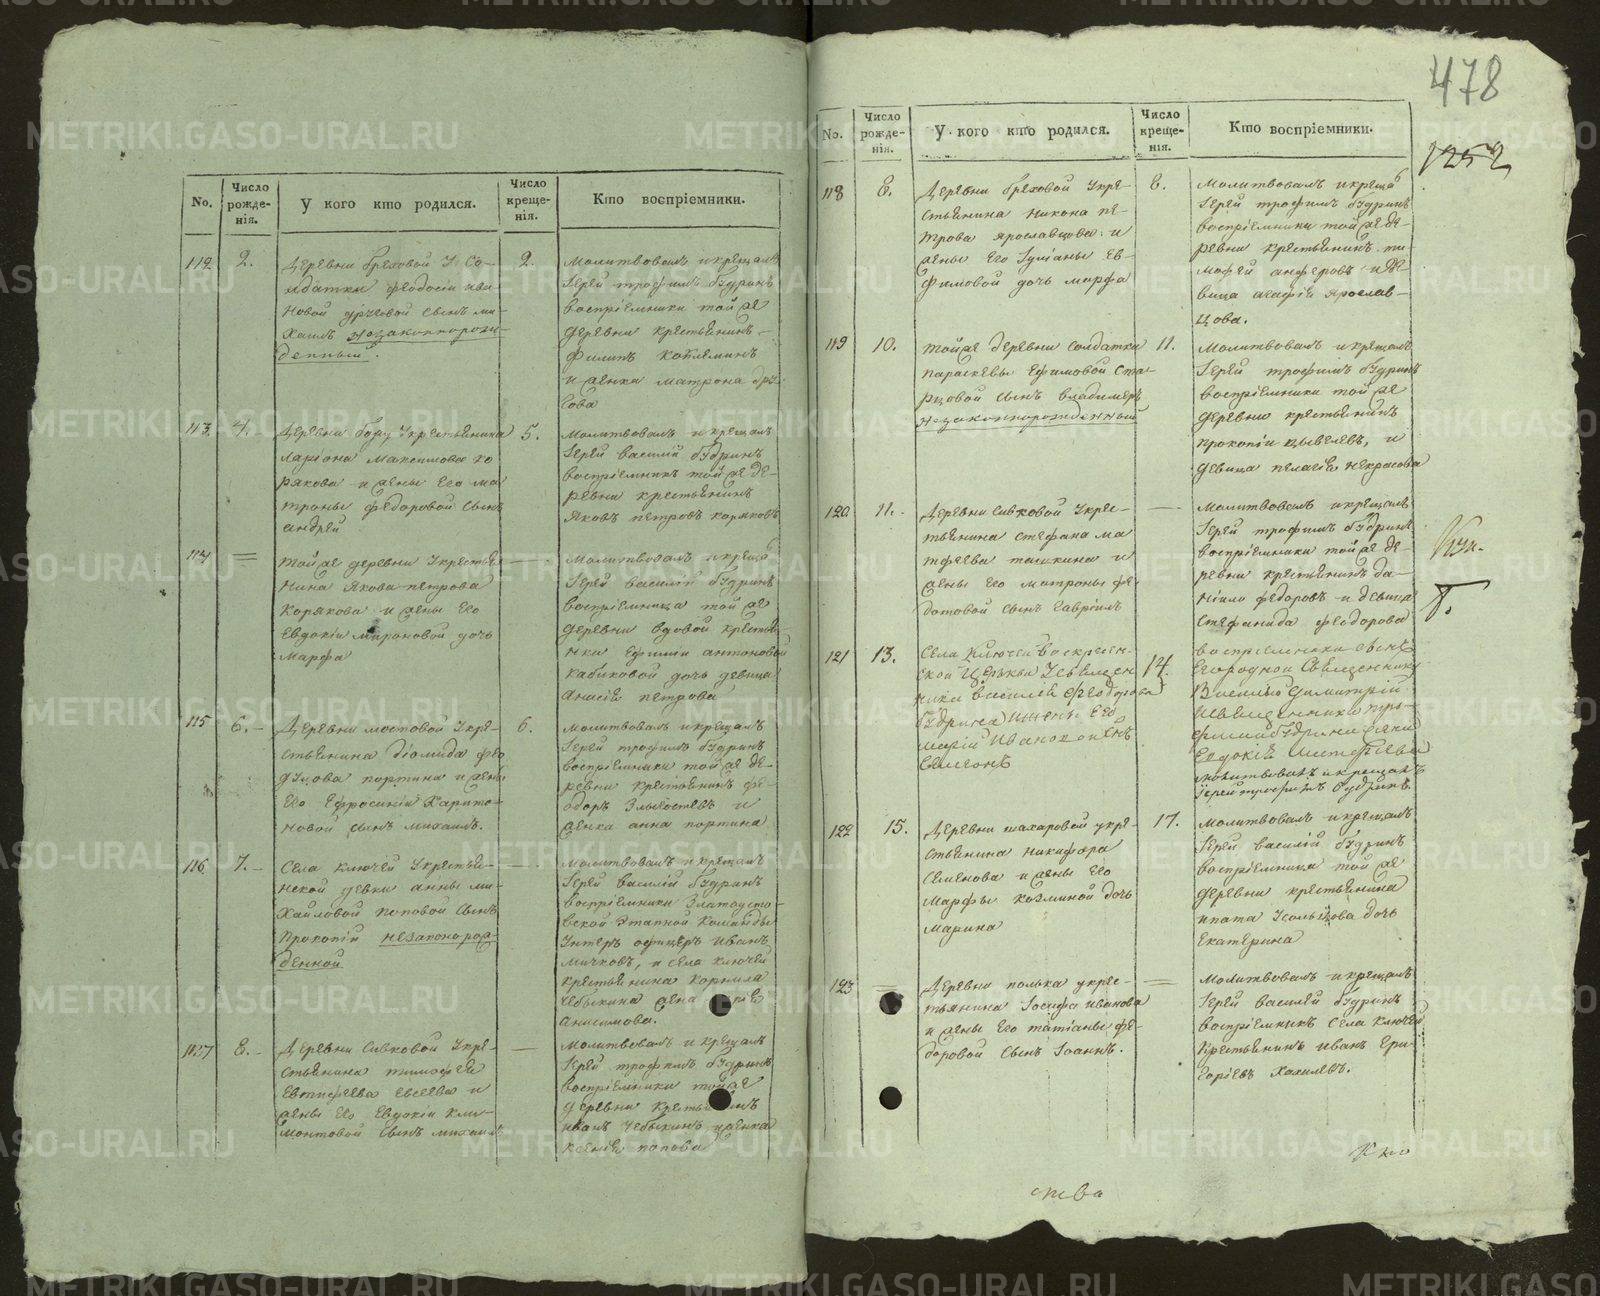 No.
Число рожде-нія.
У кого кто родился.
Число креще-нія.
Кто воспріемники.
112 2.
Деревни Греховой У Со-
лдатки Феодосіи Ива
новой
сынъ Ми-
хаилъ незаконнорож-
денный.
2.
Молитвовалъ и крещалъ
Іерей Трофимъ Будринъ
воспріемники той же
деревни крестьянинъ
Филипъ
и женка Матрона
113. 4.
Деревни Бору У крестьянина
Ларіона Максимова Ко
рякова и жены его Ма
троны Федоровой сынъ
Андрей
5.
Молитвовалъ и крещалъ
Іерей Василій Будринъ
воспріемникъ той же де-
ревни крестьянинъ
Яковъ Петровъ Коряковъ
114
Той же деревни У крестья
нина Якова Петрова
Корякова и жены его
Евдокіи Мироновой дочь
Марфа
Молитвовалъ и креща
Іерей Василій Будринъ
воспріемница той же
деревни вдовой крестья-
нки
Антоновой
Кабаковой дочь девица
Анисія Петрова
115 6.
Деревни Мостовой У кре-
стьянина Діомида Фео
дулова Портина и жены
его Ефросиніи Харито-
новой сынъ Михаилъ.
6.
Молитвовалъ и крещалъ
Іерей Трофимъ Будринъ
воспріемники той же де-
ревни крестьянинъ Фе-
одоръ
и
женка Анна Портина
116. 7.
Села Ключей У крестья-
нской девки Анны Ми-
хайловой Поповой сынъ
Прокопій незаконорож-
денной
Молитвовалъ и крещалъ
Іерей Василій Будринъ
воспріемники Златоусто-
вской Этапной Команды
Унтеръ офицеръ Иванъ
Мичковъ, и села Ключей
крестьянина Корнила
Чебыкина жена
Анисимова.
117 8.
Деревни Сивковой У кре-
стьянина Тимофея
Евтифеева Евсеева и
жены его Евдокіи Кли-
монтовой сынъ Михаилъ
Молитвовалъ и крещалъ
Іерей Трофимъ Будринъ
воспріемники той же
деревни крестьянинъ
Иванъ Чебыкинъ, и женка
Ксенія Попова
478
1252
No.
Число рожде-нія.
У кого кто родился.
Число креще-нія.
Кто воспріемники.
118 8.
Деревни Греховой У кре-
стьянина Никона Пе-
трова Ярославцова и
жены его Іуліаны Ев-
фимовой дочь Марфа
8.
Молитвовалъ и креща
Іерей Трофимъ Будринъ
воспріемники той же де-
ревни крестьянинъ Ти-
мофей Анферовъ и де-
вица Агафія Ярослав-
цова.
119 10.
Той же деревни солдатки
Параскевы Ефимовой Ста-
рцовой сынъ Владимеръ
незаконнорожденный
11.
Молитвовалъ и крещалъ
Іерей Трофимъ Будринъ
воспріемники той же
деревни крестьянинъ
Прокопіи Цывелевъ, и
девица Пелагія Некрасова
120. 11.
Деревни Сивковой У кре-
стьянина Стефана Ма
тфеева Ташкина и
жены его Матроны Фе-
дотовой сынъ Гавріилъ
Молитвовалъ и крещалъ
Іерей Трофимъ Будринъ
воспріемники той же де-
ревни крестьянинъ Да-
ніило Федоровъ и девица
Стефанида Феодорова
121 13.
Села Ключей Воскресен-
ской Церкви У Священ
ника Василія Феодорова
Будрина и жены его
Маріи Ивановой сынъ
Симеонъ
14.
Воспріемники сынъ
его родной Священнику
Василію Димитрій
и Священника Тро-
фима Будрина жена
Евдокія
Молитвовалъ и крещалъ
Іерей Трофимъ Будринъ
122 15.
Деревни Шахаровой У кре-
стьянина Никифора
Семенова и жены его
Марфы Козминой дочь
Марина
17.
Молитвовалъ и крещалъ
Іерей Василій Будринъ
воспріемница той же
деревни крестьянина
Ипата Усольцова дочь
Екатерина
123
Деревни Полька У крес-
тьянина Іосифа Иванова
и жены его Татіаны Фе-
доровой сынъ Іоаннъ.
Молитвовалъ и крещалъ
Іерей Василій Будринъ
воспріемникъ села Ключей
крестьянинъ Иванъ Гри-
горіевъ Хахилевъ.
ства
METRIKI.GASO-URAL.RU